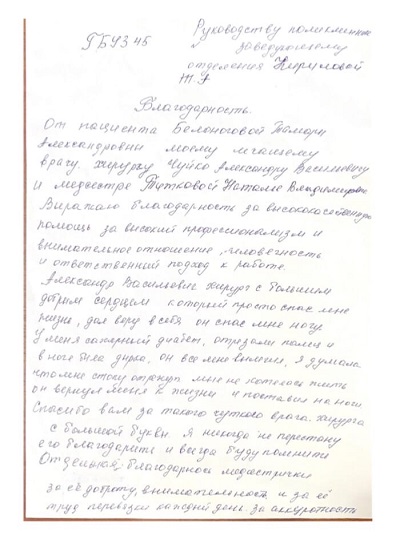 ГБУЗ 45
Руководству поликлиники
заведующему
отделения Кирилловой
Благодарность.
От пациента Белоноговой Тамары
Александровны моему лечащему
врачу. хирургу Чуйко Александру Васильевичу
и медсестре Тутковой Наталье Владимировне
Выражаю благодарность за высококачественную
помощь за высокий профессионализм и
внимательное отношение, человечность
и ответственный подход к работе.
Александр Васильевич хирург с большим
добрым сердцем который просто спас мне
жизнь, дал веру в себя он спас мне ногу
У меня сахарный диабет, отрезали палец и
в ноге была дырка, он все мне вылечил, я думала
что мне стопу отрежут мне не хотелось жить
он вернул меня к жизни и поставил на ноги.
Спасибо вам за такого чуткого врача. хирурга
с большой буквы. Я никогда не перестану
его благодарить и всегда буду помнить
Отдельная, благодарность медсестрички
за её доброту, внимательность и за её
труд перевязки каждый день. за аккуратность